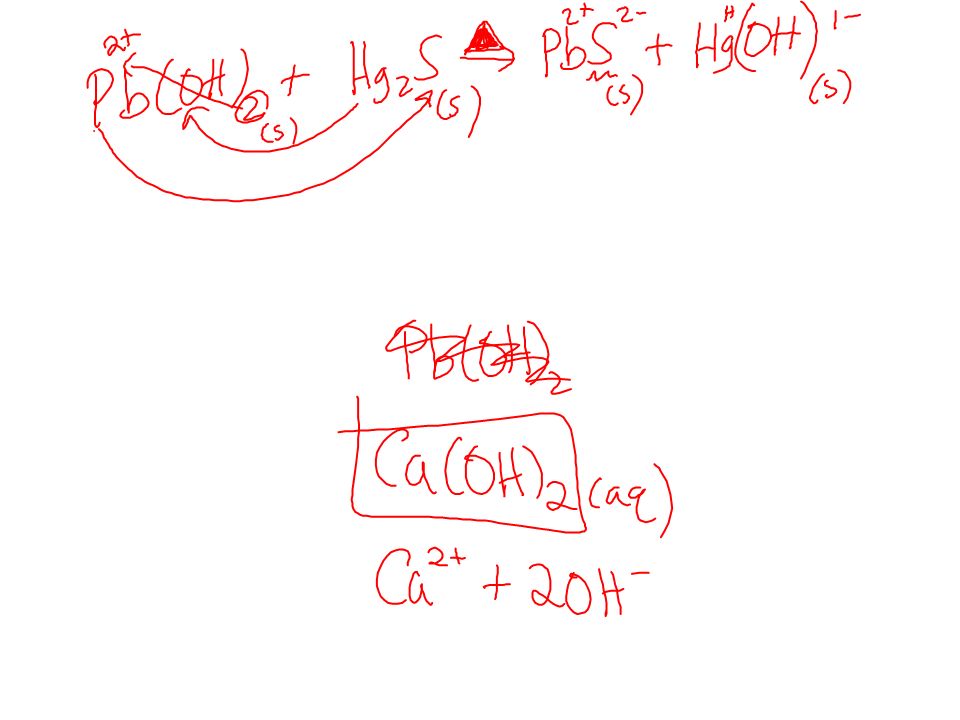 Pb²⁺(OH)₂(s) + Hg₂S(s) → Pb²⁺S²⁻(s) + Hg(OH)¹⁻(s)
Pb(OH)₂
Ca(OH)₂ (aq)
Ca²⁺ + 2OH⁻